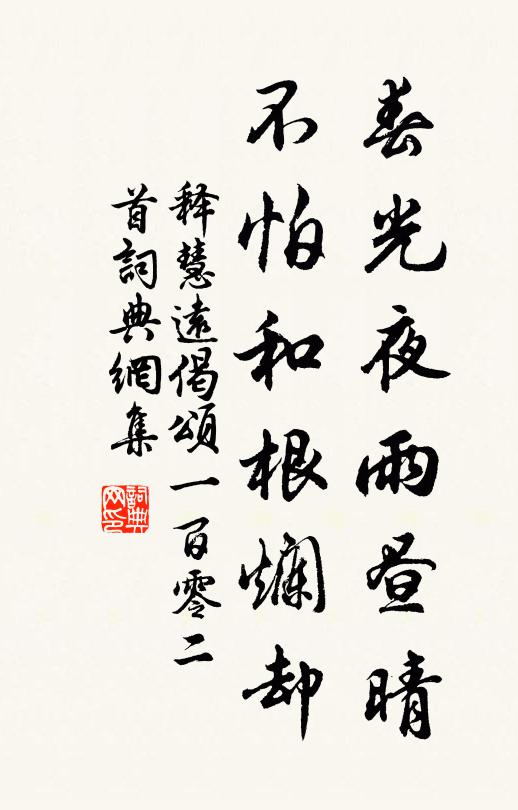 春光夜雨昼晴
不怕和根爛却
释慧遠偈頌一百零二
首詞典網集
詞典
网印